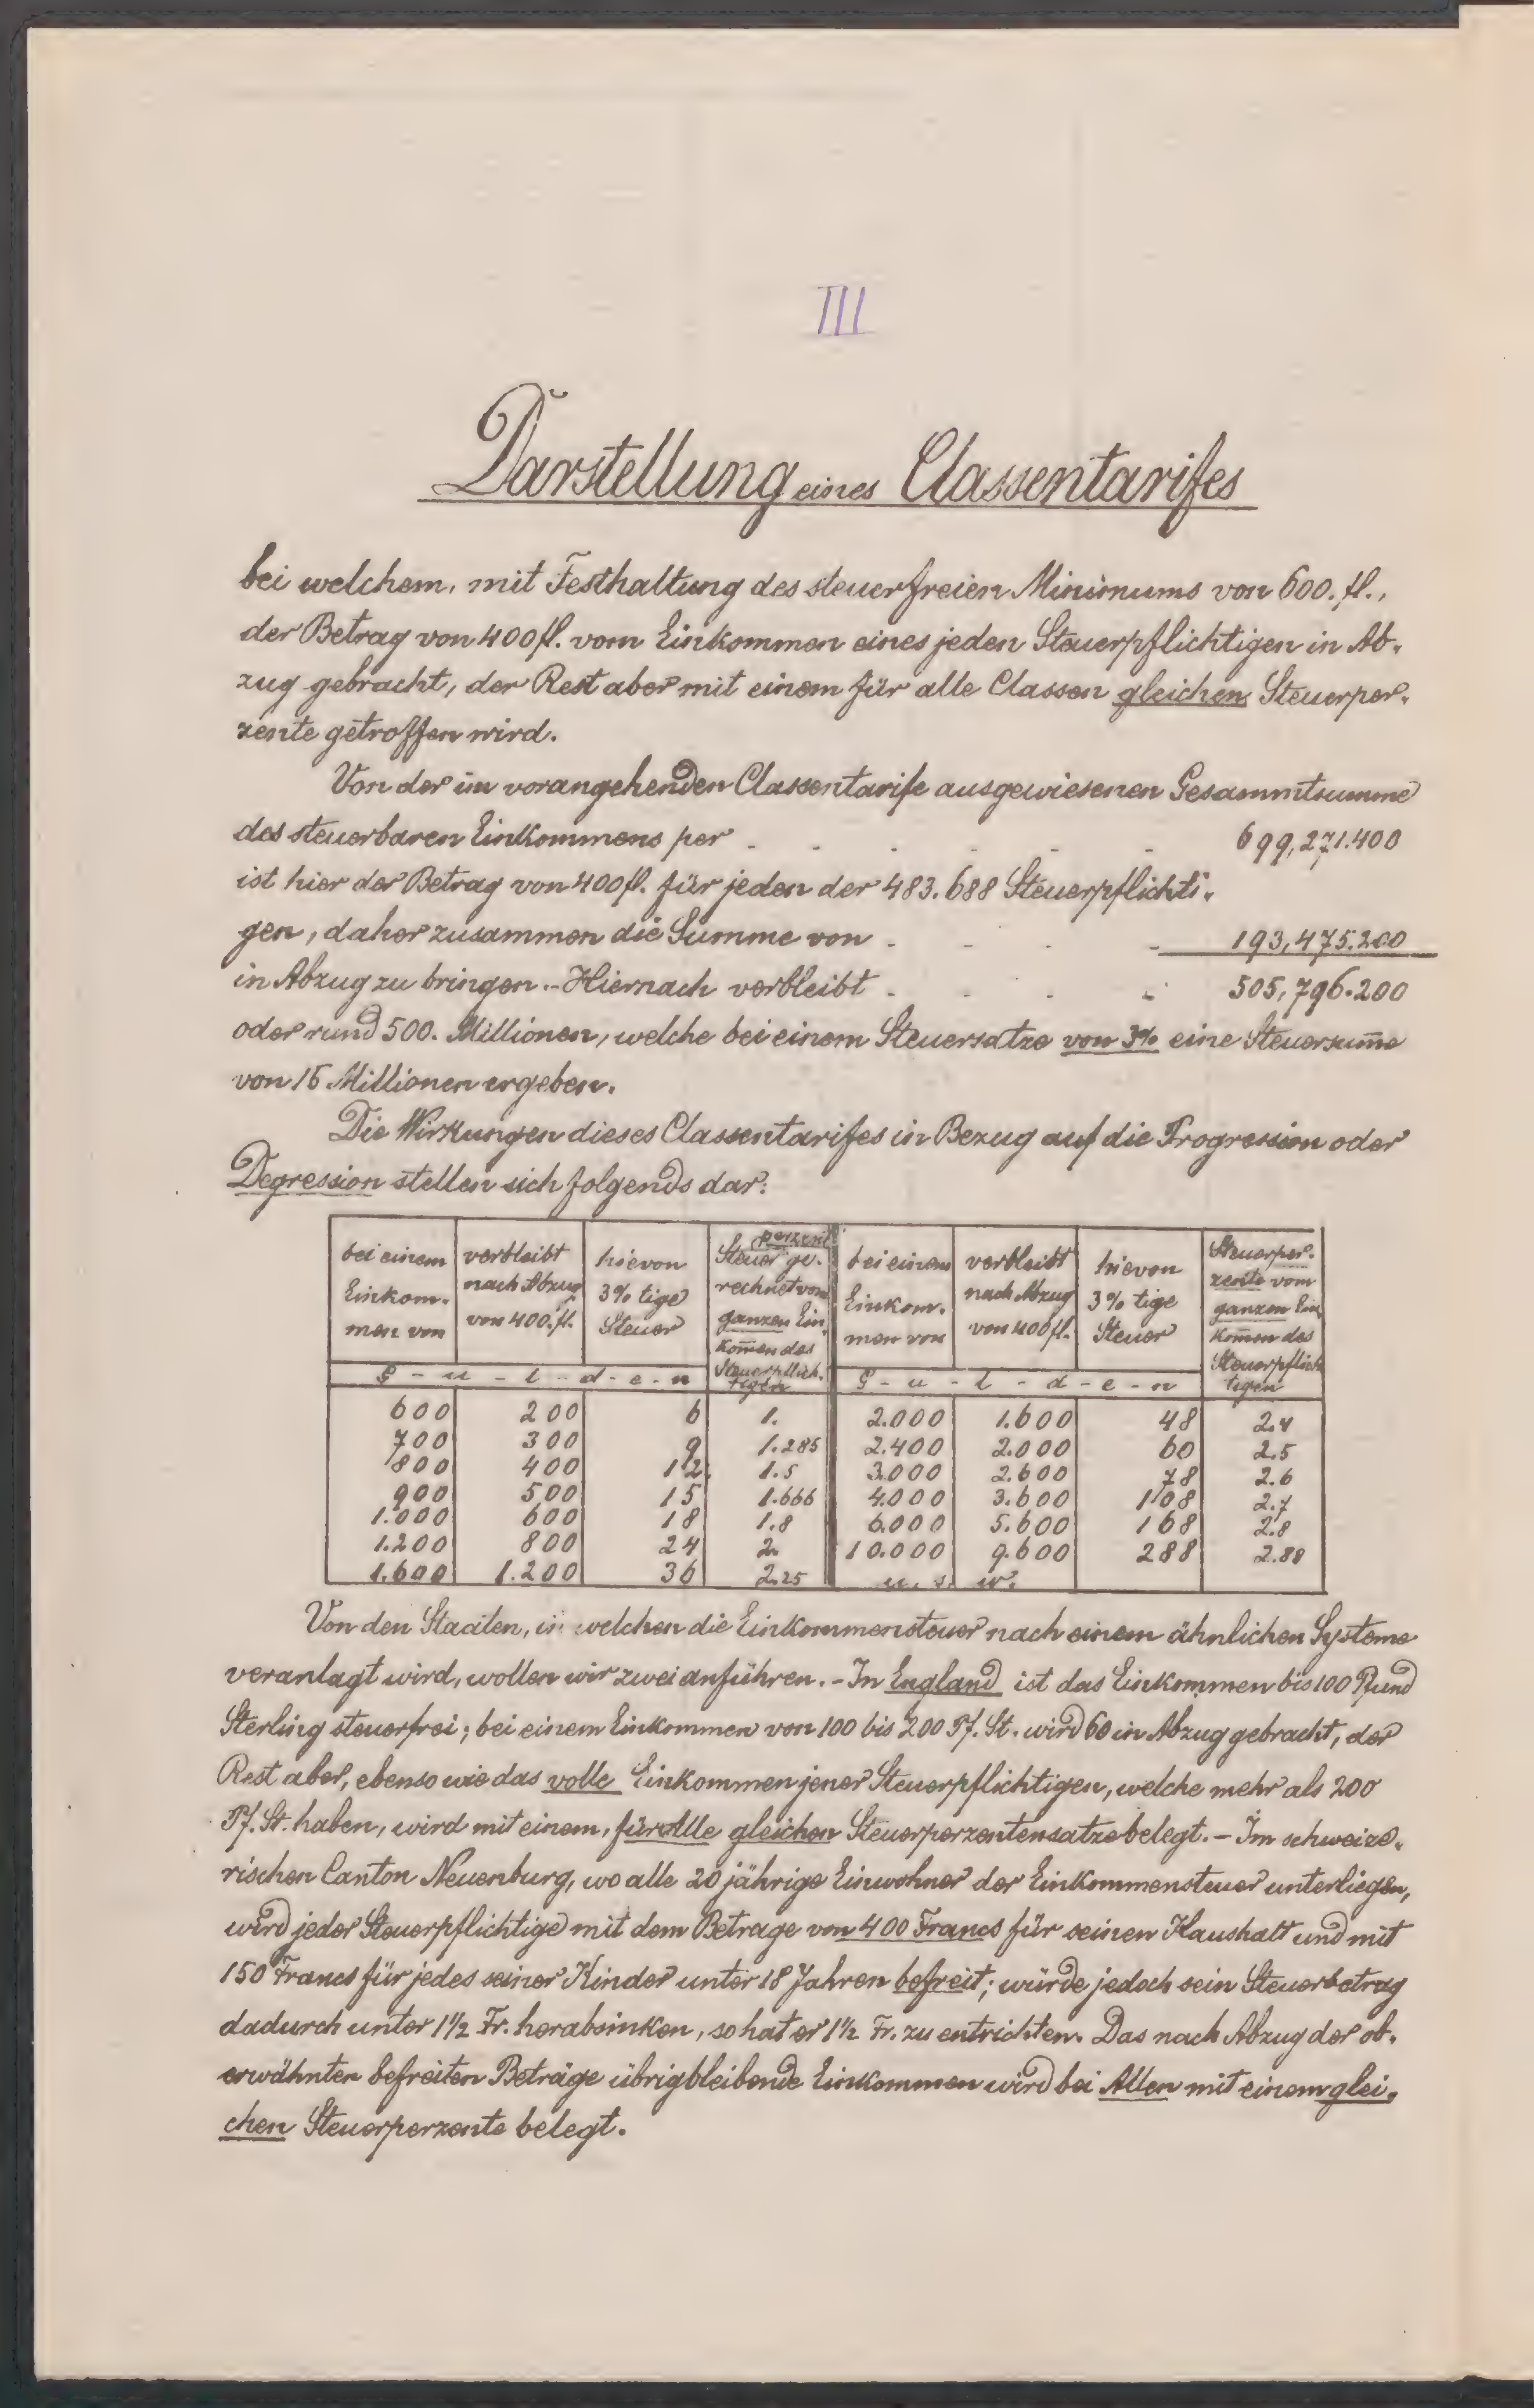 III
Darstellung eines Classentarifes
bei welchem, mit Festhaltung des steuerfreien Minimums von 600. fl.,
der Betrag von 400 fl. vom Einkommen eines jeden Steuerpflichtigen in Ab-
zug gebracht, der Rest aber mit einem für alle Classen gleichen Steuerper-
zente getroffen wird.
Von der im vorangehenden Classentarife ausgewiesenen Gesammtsumme
des steuerbaren Einkommens per - - - - - - 699,271.400
ist hier der Betrag von 400 fl. für jeden der 483.688 Steuerpflichti-
gen, daher zusammen die Summe von - - - - 193,475.200
in Abzug zu bringen. - Hiernach verbleibt - - - - 505,796.200
oder rund 500. Millionen, welche bei einem Steuersatze von 3% eine Steuersum̅e
von 15 Millionen ergeben.
Die Wirkungen dieses Classentarifes in Bezug auf die Progression oder
Degression stellen sich folgends dar:
bei einem Einkom- men von | verbleibt nach Abzug von 400. fl. | hievon 3% tige Steuer | Steuerperzent ge- rechnet vom ganzen Ein- kom̅en des Steuerpflich- tigen | bei einem Einkom- men von | verbleibt nach Abzug von 400 fl. | hievon 3% tige Steuer | Steuerper- zente vom ganzen Ein- kom̅en des Steuerpflich- tigen
G - u - l - d - e - n | G - u - l - d - e - n
600 | 200 | 6 | 1. | 2.000 | 1.600 | 48 | 2.4
700 | 300 | 9 | 1.285 | 2.400 | 2.000 | 60 | 2.5
800 | 400 | 12. | 1.5 | 3.000 | 2.600 | 78 | 2.6
900 | 500 | 15 | 1.666 | 4.000 | 3.600 | 108 | 2.7
1.000 | 600 | 18 | 1.8 | 6.000 | 5.600 | 168 | 2.8
1.200 | 800 | 24 | 2. | 10.000 | 9.600 | 288 | 2.88
1.600 | 1.200 | 36 | 2.25 | u. s. w.
Von den Staaten, in welchen die Einkommensteuer nach einem ähnlichen Systeme
veranlagt wird, wollen wir zwei anführen. - In England ist das Einkommen bis 100 Pfund
Sterling steuerfrei; bei einem Einkommen von 100 bis 200 Pf. St. wird 60 in Abzug gebracht, der
Rest aber, ebenso wie das volle Einkommen jener Steuerpflichtigen, welche mehr als 200
Pf. St. haben, wird mit einem, für Alle gleichen Steuerperzentensatze belegt. - Im schweize-
rischen Canton Neuenburg, wo alle 20 jährige Einwohner der Einkommensteuer unterliegen,
wird jeder Steuerpflichtige mit dem Betrage von 400 Francs für seinen Haushalt und mit
150 Francs für jedes seiner Kinder unter 18 Jahren befreit; würde jedoch sein Steuerbetrag
dadurch unter 1½ Fr. herabsinken, so hat er 1½ Fr. zu entrichten. Das nach Abzug der ob-
erwähnten befreiten Beträge übrigbleibende Einkommen wird bei Allen mit einem glei-
chen Steuerperzente belegt.